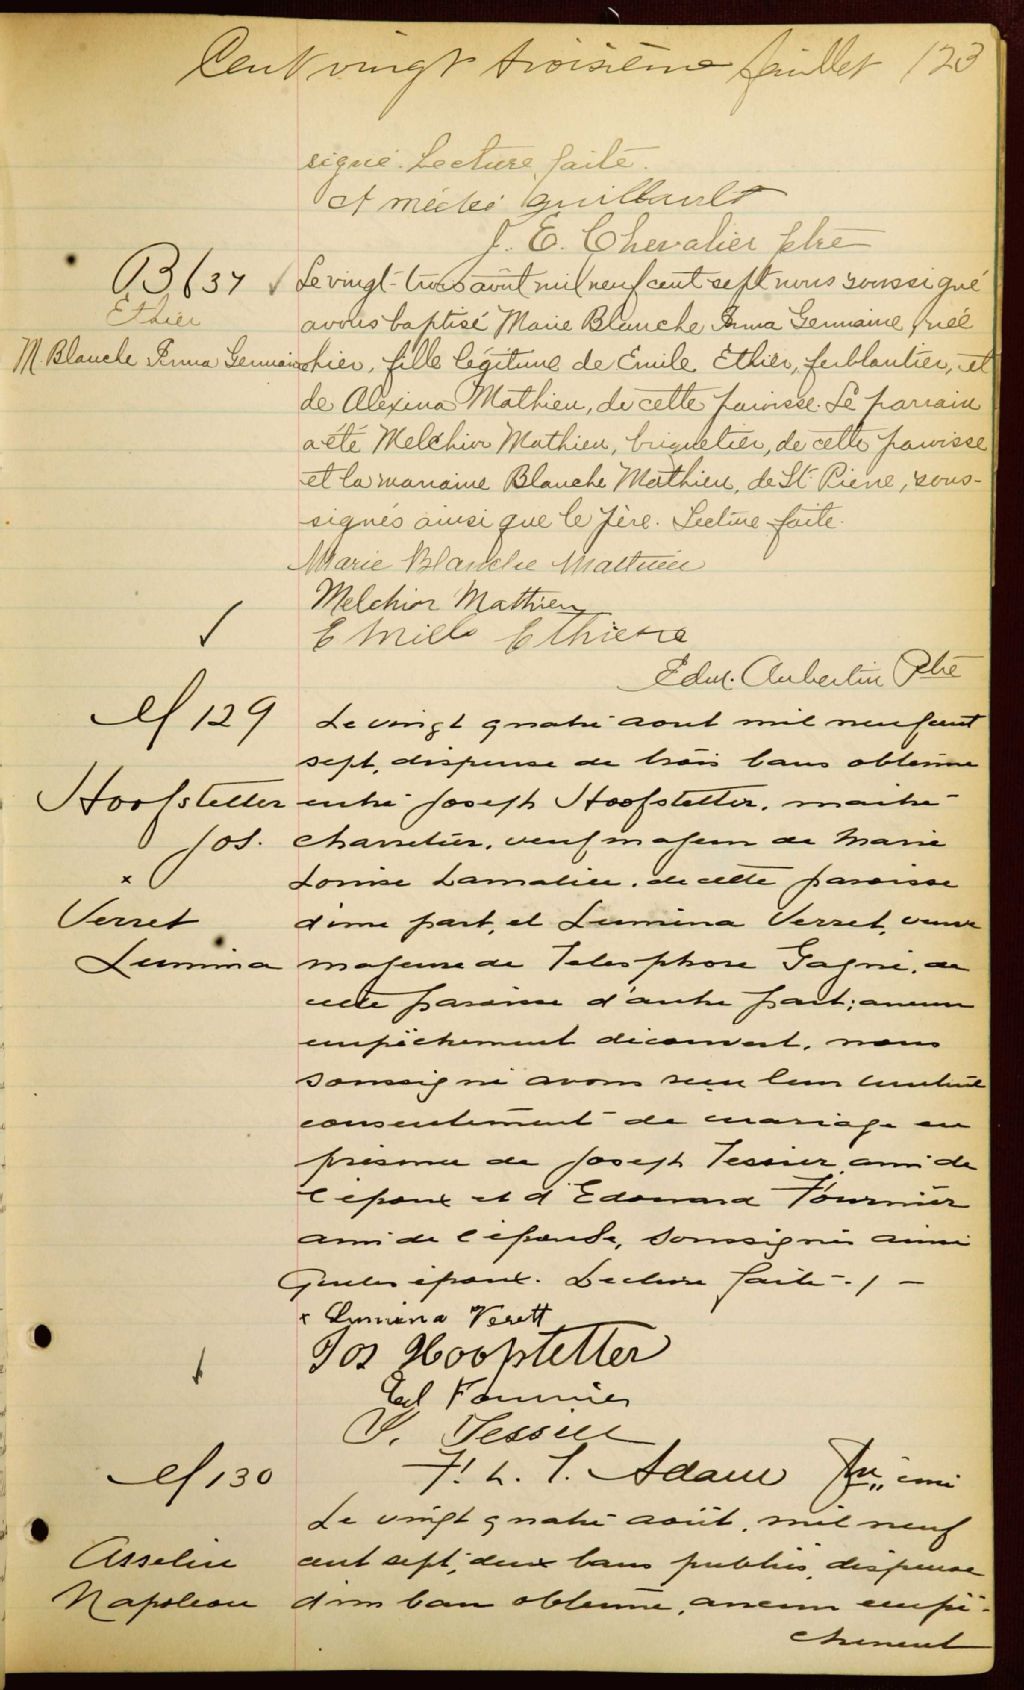 Cent vingt troisième feuillet 123
signé. Lecture faite.
Amédée Guillault
J. E. Chevalier ptre
B 637
Ethier
M. Blanche Irma Germaine
Le vingt-trois août mil neuf cent sept nous soussigné
avons baptisé Marie Blanche Irma Germaine, née
hier, fille légitime de Emile Ethier, ferblantier, et
de Alexina Mathieu, de cette paroisse. Le parrain
a été Melchior Mathieu, briquetier, de cette paroisse
et la marraine Blanche Mathieu, de St. Pierre, sous-
signés ainsi que le père. Lecture faite.
Marie Blanche Mathieu
Melchior Mathieu
Emile Ethier
Edm. Aubertin Ptre
M 129
Hoofstetter
Jos.
x
Verret
Lumina
Le vingt quatre aout mil neuf cent
sept, dispense de trois bans obtenue
entre Joseph Hoofstetter, maitre
charretier, veuf majeur de Marie
Louise Lamalice, de cette paroisse
d'une part, et Lumina Verret, veuve
majeure de Telesphore Gagné, de
cette paroisse d'autre part; aucun
empêchement découvert, nous
soussigné avons reçu leur mutuel
consentement de mariage en
présence de Joseph Tessier ami de
l'époux et d'Edouard Fournier
ami de l'épouse, soussignés ainsi
que les époux. Lecture faite-./-
x Lumina Verett
Jos Hoofstetter
Ed Fournier
J. Tessier
F. L. T. Adam Ptre curé
M 130
Asselin
Napoléon
Le vingt quatre août, mil neuf
cent sept, deux bans publiés, dispense
d'un ban obtenue, aucun empê-
chement